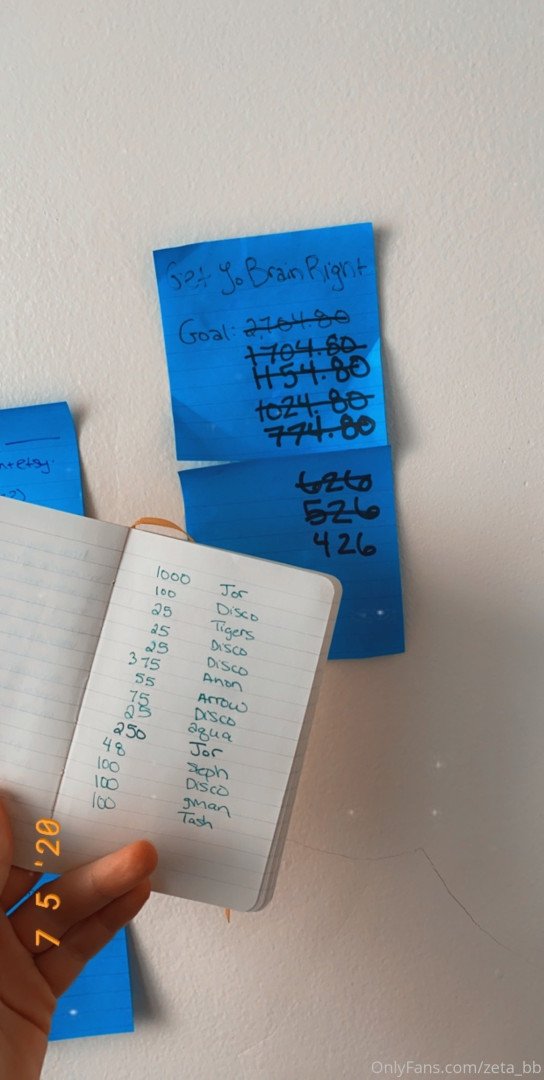 Get Yo Brain Right
Goal: 2704.80
1704.80
1154.80
1024.80
774.80
626
526
426
1000 Jor
100 Disco
25 Tigers
25 Disco
25 Disco
375 Anon
55 Arrow
75 Disco
25 aqua
250 Jor
48 Steph
100 Disco
100 gman
100 Tash
7 5 '20
OnlyFans.com/zeta_bb